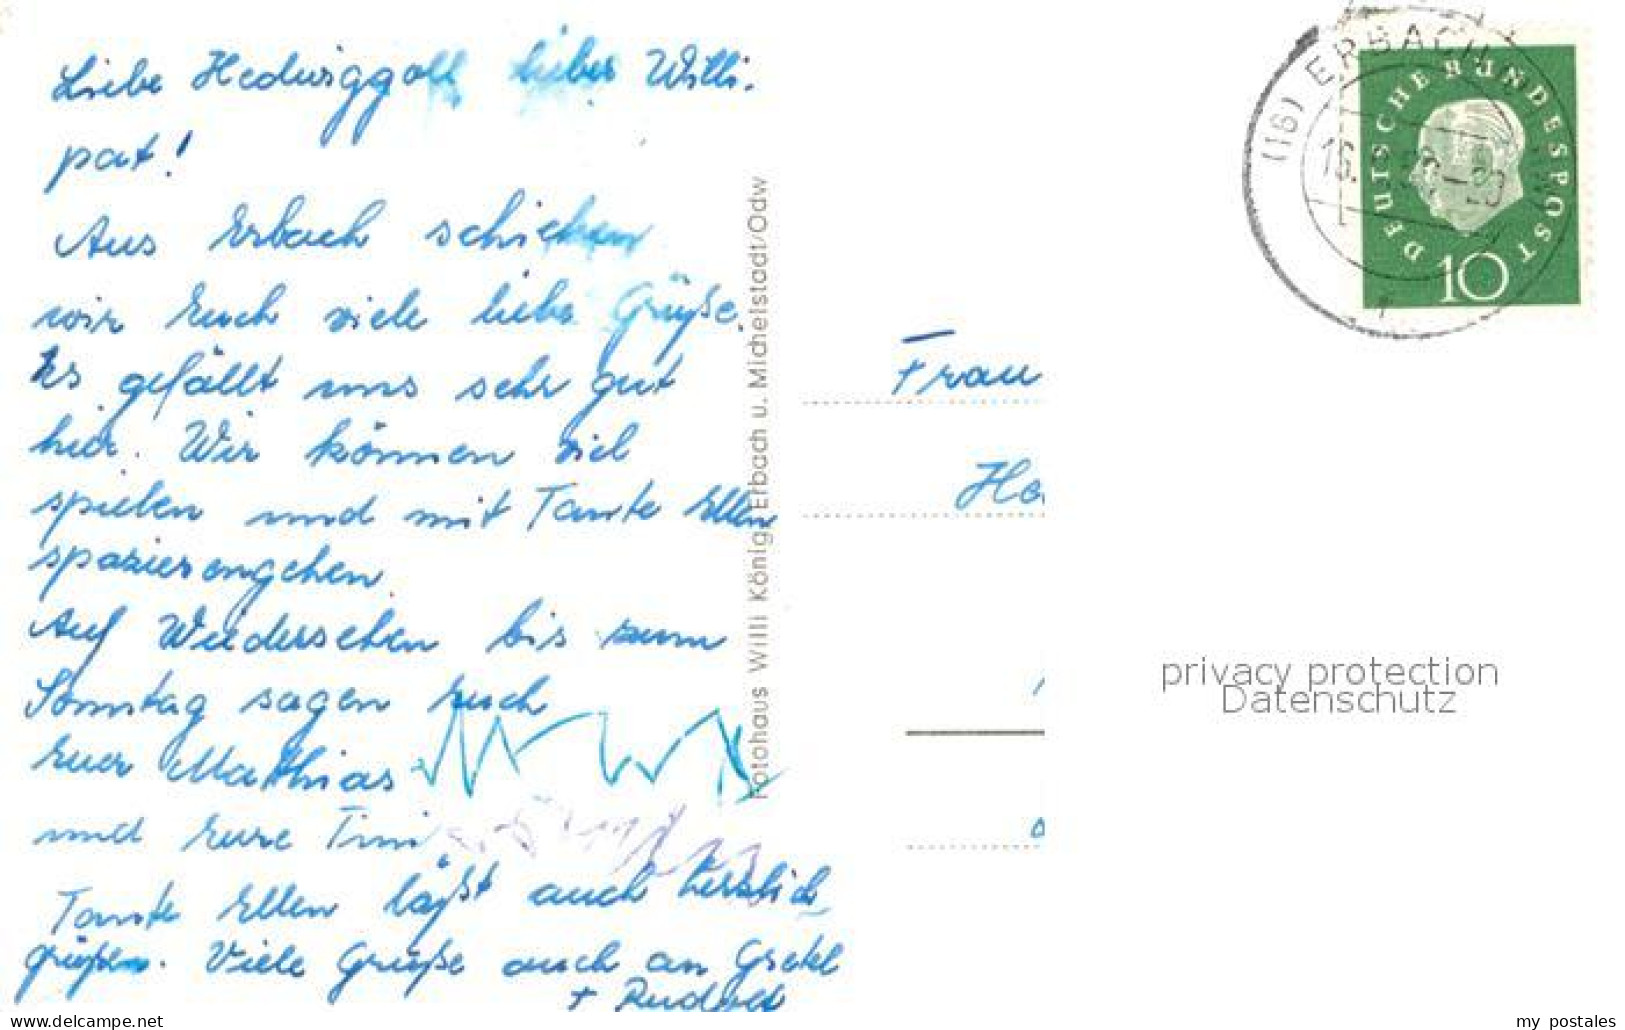 Liebe Hedwiggoll lieber Willi-
pat!
Aus Erbach schicken
wir Euch viele liebe Grüße.
Es gefällt uns sehr gut
hier. Wir können viel
spielen und mit Tante Ellen
spazierengehen.
Auf Wiedersehen bis zum
Sonntag sagen Euch
Euer Mathias
und Eure Tini
Tante Ellen läßt auch herzlich
grüßen. Viele Grüße auch an Gretel
+ Rudolf
Fotohaus Willi König, Erbach u. Michelstadt/Odw
(16) ERBACH
16.
DEUTSCHE BUNDESPOST
10
Frau
privacy protection
Datenschutz
www.delcampe.net
my_postales